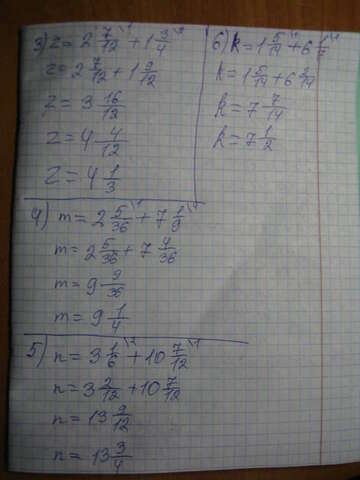 3) z = 2 7/12 \1 + 1 3/4 \3
z = 2 7/12 + 1 9/12
z = 3 16/12
z = 4 4/12
z = 4 1/3
4) m = 2 5/36 \1 + 7 1/9 \4
m = 2 5/36 + 7 4/36
m = 9 9/36
m = 9 1/4
5) n = 3 1/6 \2 + 10 7/12 \1
n = 3 2/12 + 10 7/12
n = 13 9/12
n = 13 3/4
6) k = 1 5/14 \1 + 6 1/7 \2
k = 1 5/14 + 6 2/14
k = 7 7/14
k = 7 1/2